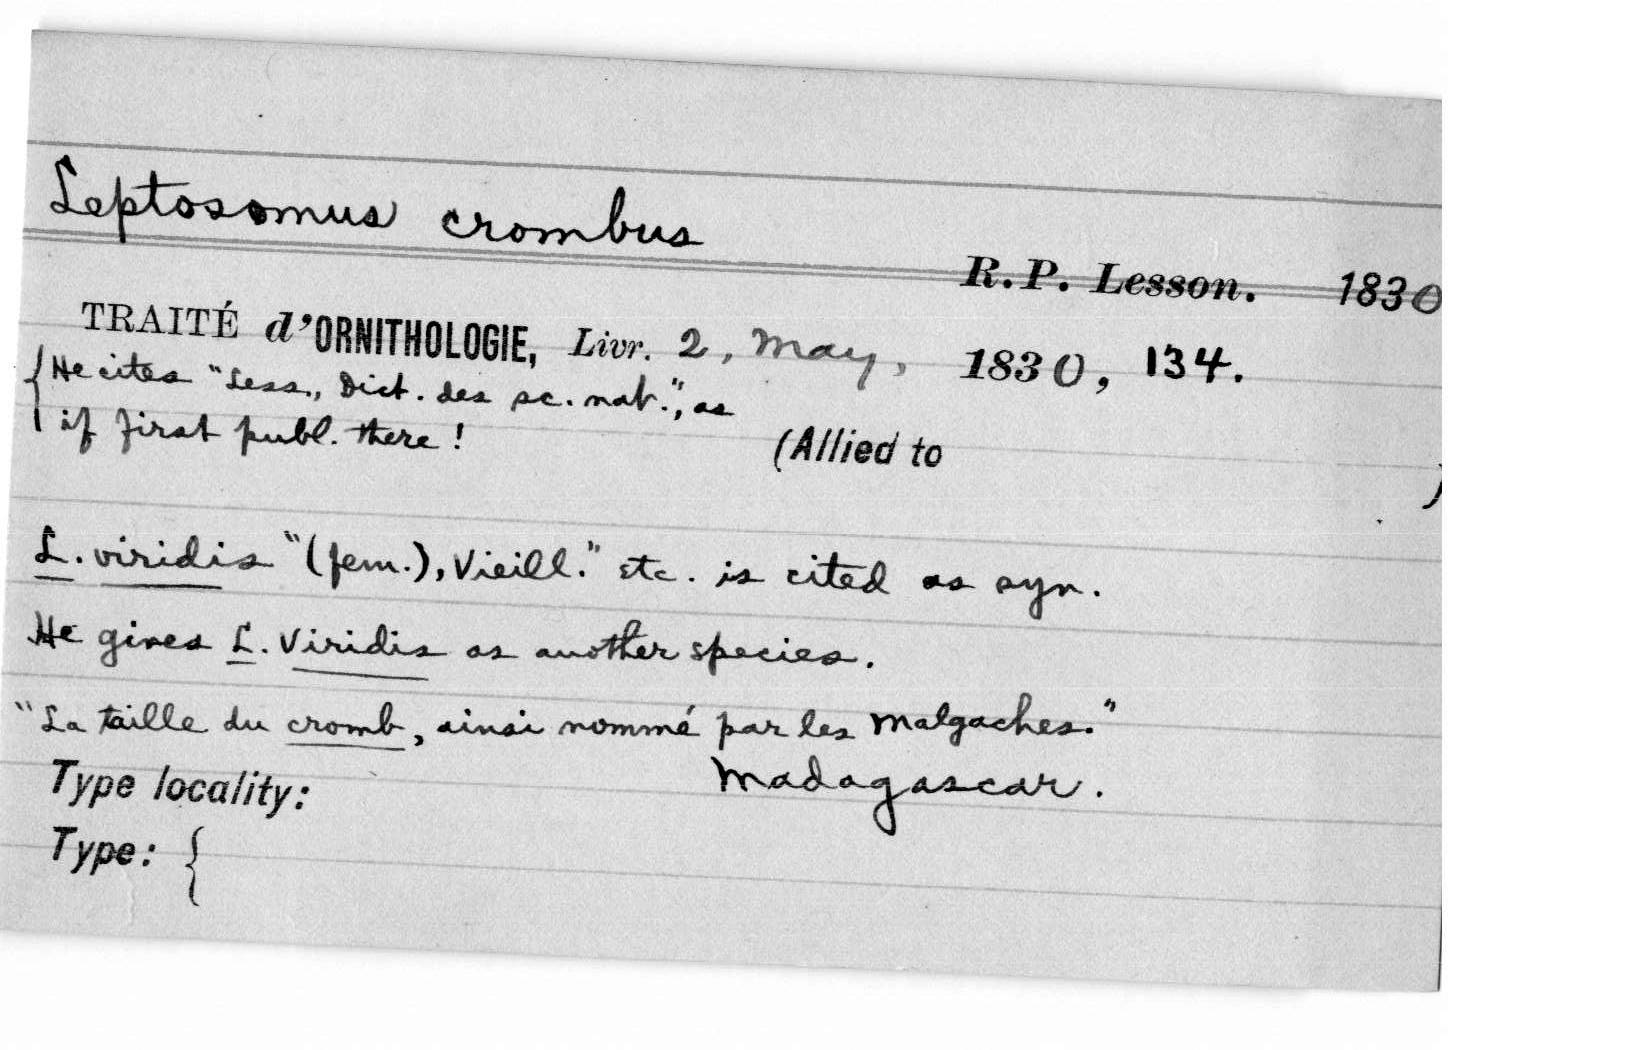 Leptosomus crombus
R.P. Lesson. 1830
TRAITÉ d'ORNITHOLOGIE, Livr. 2, May, 1830, 134.
{He cites "Less., Dict. des sc. nat.", as
if first publ. there!
(Allied to )
L. viridis "(fem.), Vieill." etc. is cited as syn.
He gives L. viridis as another species.
"La taille du cromb, ainsi nommé par les Malgaches."
Type locality: Madagascar.
Type: {